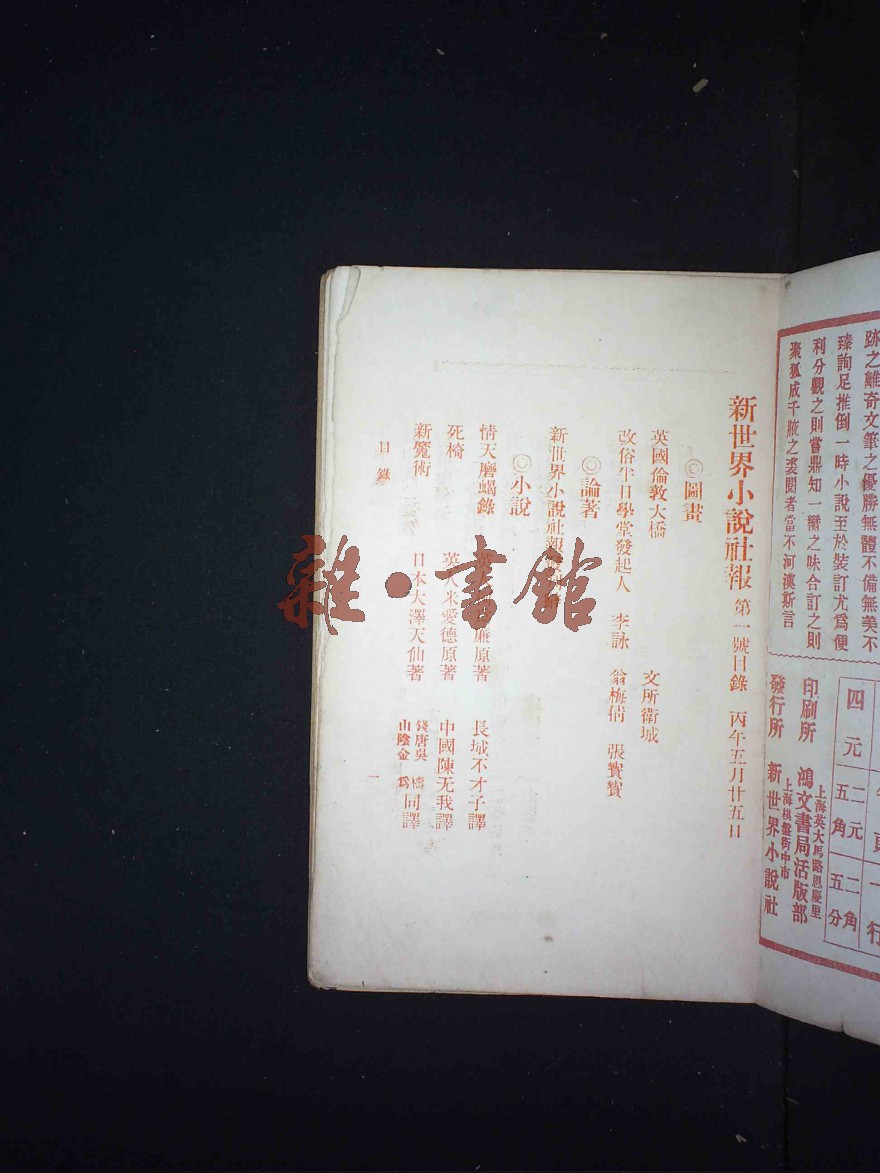 跡之離奇文筆之優勝無體不備無美不
臻詢足推倒一時小說至於裝訂尤爲便
利分觀之則嘗鼎知一臠之味合訂之則
聚狐成千腋之裘閱者當不河漢斯言
一行
四元 二元五角 二角五分
印刷所 上海英大馬路恩慶里 鴻文書局活版部
發行所 上海棋盤街中市 新世界小說社
新世界小說社報 第一號目錄 丙午五月廿五日
◎圖畫
英國倫敦大橋 文所衛城
改俗半日學堂發起人 李詠 翁梅倩 張寶寶
◎論著
新世界小說社報
◎小說
情天磨蝎錄 英 原著 長城不才子譯
死椅 英人米愛德原著 中國陳无我譯
新魔術 日本大澤天仙著 錢唐吳檮 山陰金爲 同譯
目錄 一
雜·書館